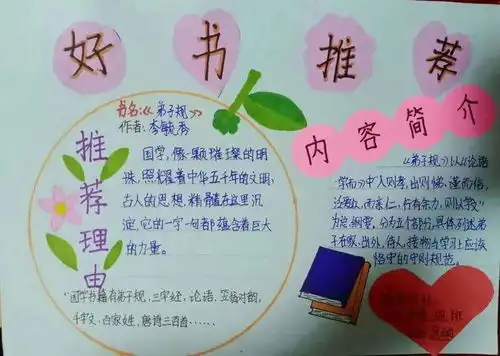 好书推荐
书名:《弟子规》
作者:李毓秀
推荐理由
国学,像一颗璀璨的明
珠,照耀着中华五千年的文明,
古人的思想,精髓在这里沉
淀,它的一字一句都蕴含着巨大
的力量。
国学书籍有弟子规,三字经,论语,笠翁对韵,
千字文,百家姓,唐诗三百首……
内容简介
《弟子规》以《论语
学而》中"入则孝,出则悌,谨而信,
泛爱众,而亲仁,行有余力,则以学文"
为总纲要,分为五个部分,具体列述弟
子在家、出外、待人、接物与学习上应该
恪守的守则规范。